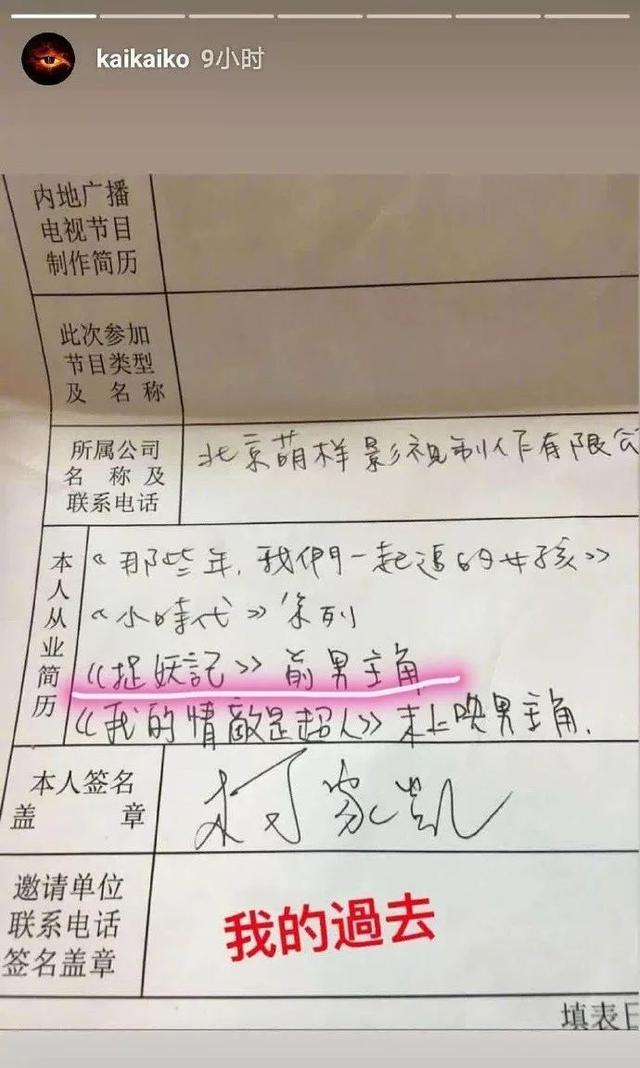 kaikaiko 9小时
内地广播
电视节目
制作简历
此次参加
节目类型
及 名 称
所属公司
名 称 及
联系电话
北京萌样影视制作有限公
本人从业简历
《那些年,我們一起追的女孩》
《小時代》系列
《捉妖記》前男主角
《我的情敵是超人》未上映男主角.
本人签名
盖 章
柯家凯
邀请单位
联系电话
签名盖章
我的過去
填表日